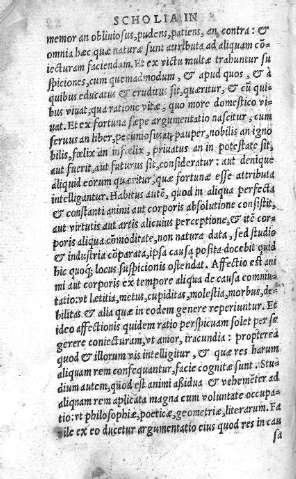 SCHOLIA IN
memor an obliuiosus, pudens, patiens, an, contra: &
omnia hæc quæ natura sunt attributa ad aliquam cõ-
iecturam faciendam. Et ex victu multæ trahuntur su
spiciones, cum quemadmodum, & apud quos, & à
quibus educatus & eruditus sit, quæritur, & cũ qui-
bus viuat, qua ratione vitæ, quo more domestico vi-
uat. Et ex fortuna sæpe argumentatio nascitur, cum
seruus an liber, pecuniosus an pauper, nobilis an igno
bilis, fœlix an infœlix, priuatus an in potestate sit,
aut fuerit, aut futurus sit, consideratur: aut denique
aliquid eorum quæritur, quæ fortunæ esse attributa
intelliguntur. Habitus autẽ, quod in aliqua perfecta
& constanti animi aut corporis absolutione consistit,
aut virtutis aut artis alicuius perceptione, & itẽ cor-
poris aliqua cõmoditate, non natura data, sed studio
& industria cõparata, ipsa causa posita docebit quid
hic quoq; locus suspicionis ostendat. Affectio est ani
mi aut corporis ex tempore aliqua de causa commu-
tatio: vt lætitia, metus, cupiditas, molestia, morbus, de-
bilitas & alia quæ in eodem genere reperiuntur. Et
ideo affectionis quidem ratio perspicuam solet præ se
gerere coniecturam, vt amor, iracundia: propterea
quod & illorum vis intelligitur, & quæ res harum
aliquam rem consequantur, facie cognitæ sunt. Stu-
dium autem, quod est animi aßidua & vehemẽter ad
aliquam rem aplicata magna cum voluntate occupa-
tio: vt philosophiæ, poeticæ, geometriæ, literarum. Fa
cile ex eo ducetur argumentatio eius quod res in cau
sa